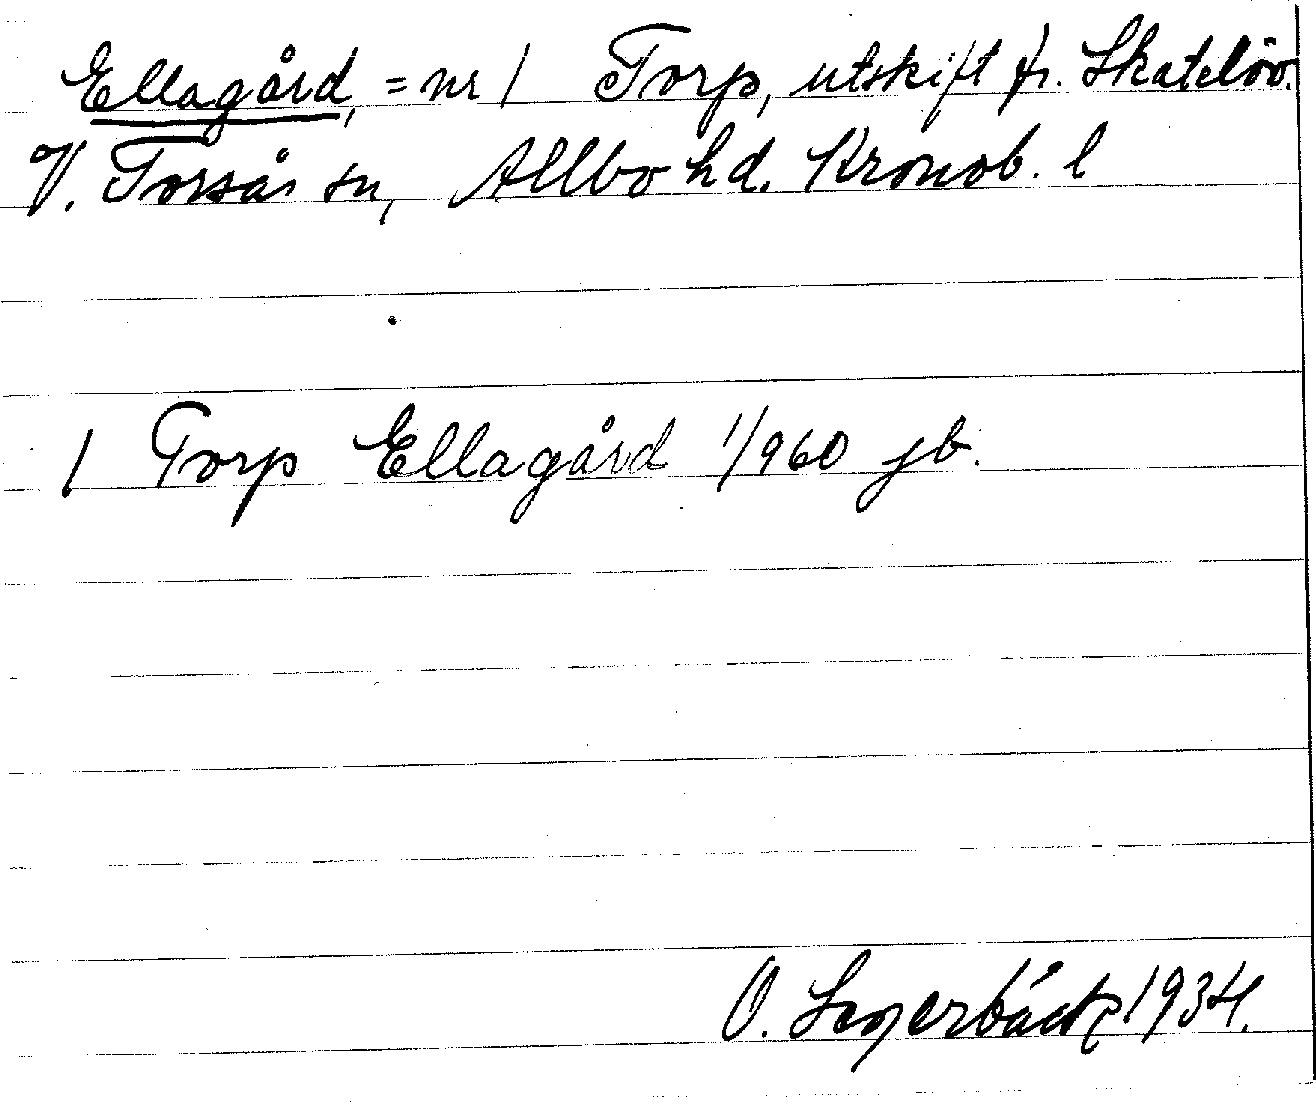 Ellagård, = nr 1 Torp, utskift fr. Skatelöv.
V. Torsås sn, Allbo hd. Kronob. l
1 Torp Ellagård 1/960 jb.
O. Lagerbäck 1934.